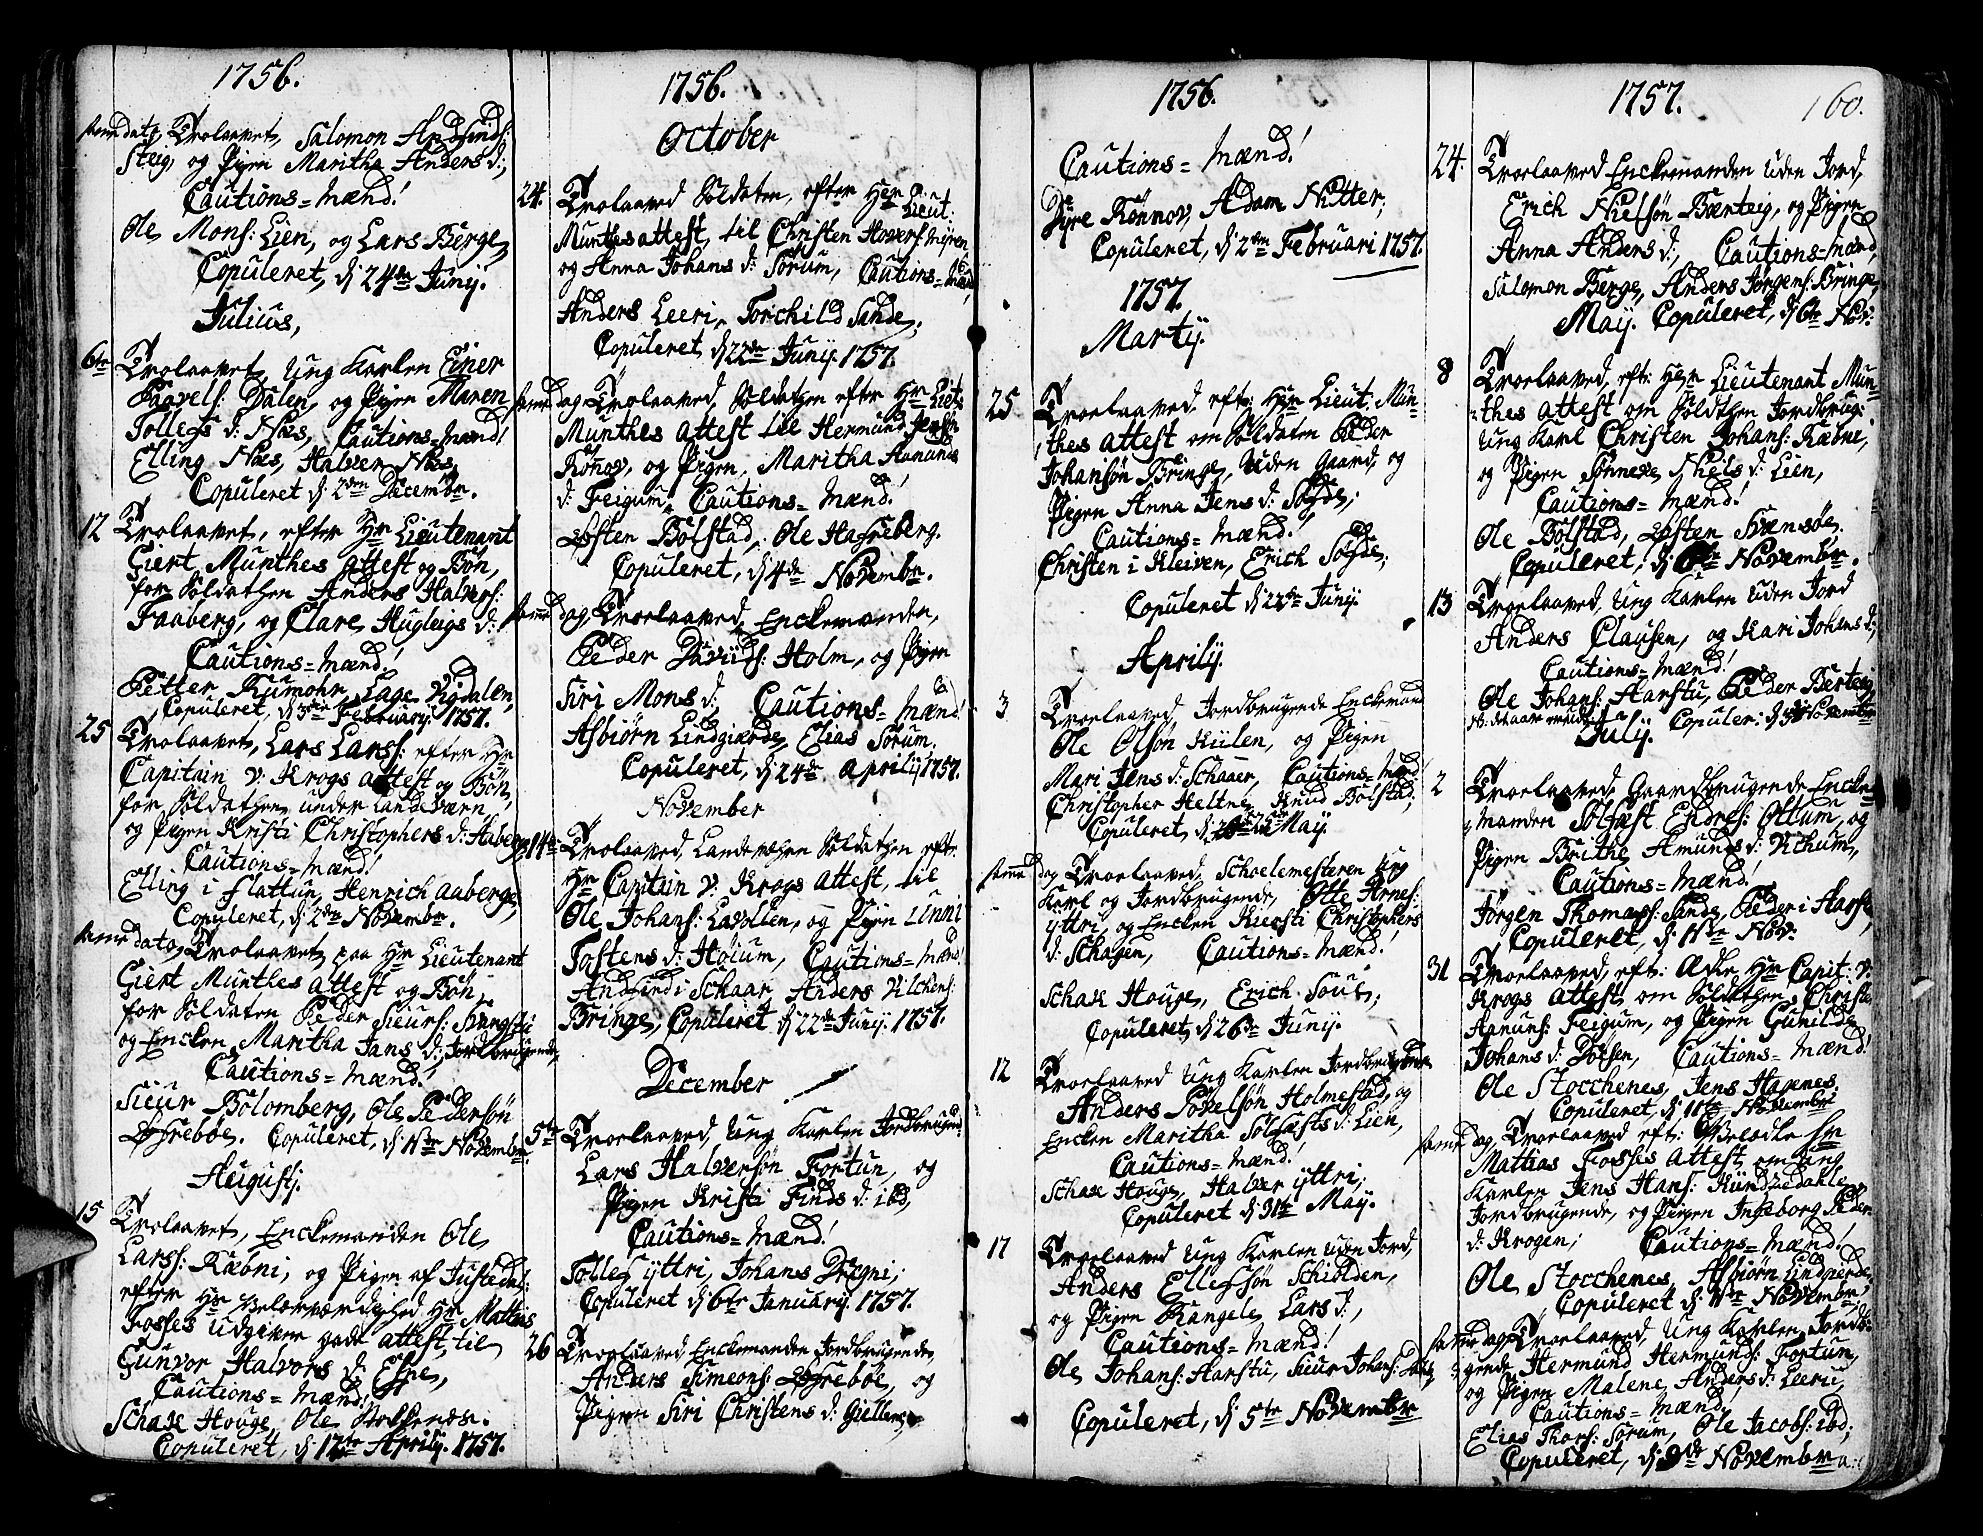 1756.
same dato, Trolaavet, Salomon Andfinds:
Steig, og Pigen Maritha Anders d:,
Cautions=Mænd!
Ole Mons: Lien, og Lars Berge,
Copuleret, d: 24de Junij.
Julius,
6te Trolaavet, Ung Karlen Einer
Paavels: Dalen, og Pigen Maren
Tollefs d: Næs, Cautions=Mænd!
Elling Næs, Halver Næs,
Copuleret d: 2den Decembr.
12 Trolaavet, efter Hr Lieutenant
Giert Munthes attest og Bøn,
for Soldathen Anders Halvers:
Faaberg, og Clare Hugleigs d:
Cautions=Mænd!
Petter Kumohr, Lage Vigdalen,
Copuleret, d: 3die Februarij 1757.
25 Trolaavet, Lars Larss: efter Hr
Capitain v: Krogs attest og Bøn,
for Soldathen under Landeværn,
og Pigen Kristi Christophers d: Haberge
Cautions=Mænd!
Elling i Flattun, Henrich Auberge,
Copuleret, d: 2den Novembr.
same dato, Trolaavet, paa Hr Lieutenant
Giert Munthes attest og Bøn,
for Soldaten Peder Sieurs:
og Encken Maritha Jans d: Jordbrugende,
Cautions=Mænd!
Sieur Bolomberg, Ole Pedersøn
Øfrebøe. Copuleret, d: 11te Novembr.
Augustj.
15 Trolaavet, Enckemanden Ole
Larss: Ræbni, og Pigen af Justedal:
efter Hr Velærværdighed Hr Mattias
Fosses udgivne gode attest, til
Gunvor Halvors d: Espe,
Cautions=Mænd!
Schak Houge, Ole
Copuleret, d: 17te Aprilij. 1757.
1756.
October
24. Trolaaved Soldaten, efter Hr Lieut:
Munthes attest, til Christen Hovers: Myren
og Anna Johans d: Sorum, Cautions=Mænd,
Anders Leeri, Torchild Sande,
Copuleret d: 22de Junij. 1757.
same dag Trolaaved, Soldathen efter Hr Liet:
Munthes attest til Hermund Jensøn
Rønnov, og Pigen, Maritha Aamunds
d: Feigum, Cautions=Mænd!
Østen Bolstad, Ole Hafreberg.
Copuleret, d: 4de Novembr.
same dag Troelaaved, Enckemanden,
Peder Davids: Holm, og Pigen
Siri Mons d: Cautions=Mænd!
Asbiørn Lindgierde, Elias Sorum.
Copuleret, d: 24de Aprilij 1757.
November
14de Trolaaved, Landevægen Soldathen efter
Hr Capitain v: Krogs attest, til
Ole Johans: Lavollen, og Pigen Linni
Tostens d: Høium, Cautions=Mænd!
Andfind i Schaar, Anders Vilchens:
Bringe, Copuleret d: 22de Junij. 1757.
December
5te Troelaaved, Ung Karlen Jordbrugend:
Lars Halversøn Fortun, og
Pigen Kristi Finds d: ibd,
Cautions=Mænd!
Tollef Yttri, Johans Drægni,
Copuleret d: 6te Januarij. 1757.
26 Troelaaved Enckemanden Jordbrugende,
Anders Simeons: Øfrebøe, og
Pigen Siri Christens d: Giellene,
1756.
Cautions=Mænd!
Dyre Rønnov, Adam Nitter;
Copuleret, d: 2den Februari 1757.
1757.
Martij.
25 Troelaaved, eft: Hr Lieut. Mun-
thes attest om Soldaten Peder
Johansøn Bringe, Uden Gaard, og
Pigen Anna Jens d: Sogde;
Cautions=Mænd!
Christen i Kleiven, Erich Sogde;
Copuleret d: 22de Junij.
Aprilij.
3 Troelaaved, Jordbrugende Enckemand
Ole Olsøn Kiilen, og Pigen
Mari Jens d: Schaaer, Cautions=Mænd!
Christopher Heltne, Knud Bolstad;
Copuleret, d: 25de Maij.
same dag Troelaaved, Schoelemesteren Ung
Karl og Jordbrugende, Otte Arnes:
Yttri, og Encken Kiersti Christophers
d: Schagen, Cautions=Mænd!
Schak Houge, Erich
Copuleret, d: 26de Junij.
12 Troelaaved Ung Karlen Jordbrugende
Anders Povelsøn Holmestad, og
Encken Maritha Solfæsts d: Lien,
Cautions=Mænd!
Schak Houge, Halver Yttri;
Copuleret d: 31te Maij.
17 Troelaaved Ung Karlen Uden Jord,
Anders Ellefsøn Schiolden,
og Pigen Rangele Lars d:,
Cautions=Mænd!
Ole Johans: Harstu, Sieur Johans:
Copuleret, d: 5te Novembr
1757. 160.
24. Troelaaved Enckemanden Uden Jord,
Erich Nielsøn Bærteig, og Pigen
Anna Anders d:, Cautions=Mænd,
Salomon Berge, Anders Jørgens: Bringe,
Maij. Copuleret, d: 6te Nov:
8 Troelaaved, eft: Hr Lieutenant Mun-
thes attest om Soldathen Jordbrug:
Ung Karl Christen Johans: Ræbni,
og Pigen Sønneve Niels d: Lien,
Cautions=Mænd!
Ole Bolstad, Østen Svensøe,
Copuleret, d: 6te Novembr.
13 Troelaaved, Ung Karlen Uden Jord
Anders Clausen, og Kari Johans d:,
Cautions=Mænd!
Ole Johans: Harstu, Peder Berteig
Copuler: d: Novembr
Julij.
2 Troelaaved, Gaardbrugende Encke-
manden Solfæst Endres: Ottum, og
Pigen Brithe Amunds d: Kihum,
Cautions=Mænd!
Jørgen Thomass: Sande, Peder i Harstu,
Copuleret, d: 11te Nov:
31 Troelaaved, eft: Ædle Hr Capit: v:
Krogs attest om Soldathen Christen
Aanuns: Feigum, og Pigen Gunilde
Johans d: Døsen, Cautions=Mænd!
Ole Stocchenes, Jens Hagenes.
Copuleret, d: 11te Novembr
same dag, Troelaaved eft: Velædle Hr
Mattias Fosses attest om Ung
Karlen Jens Hans:
Jordbrugende, og Pigen Ingeborg Peder
d: Krogen; Cautions=Mænd!
Ole Stocchenes, Asbiørn Lindgierde,
Copuleret d: 11te Novembr,
same dag Troelaaved, Ung Karlen, Jordbr-
gende Hermund Hermunds: Fortun,
og Pigen Malene Anders d: Leeri,
Cautions=Mænd,
Elias Thors: Sorum, Ole Jacobs: ibd;
Copuleret, d: 9de Novembr